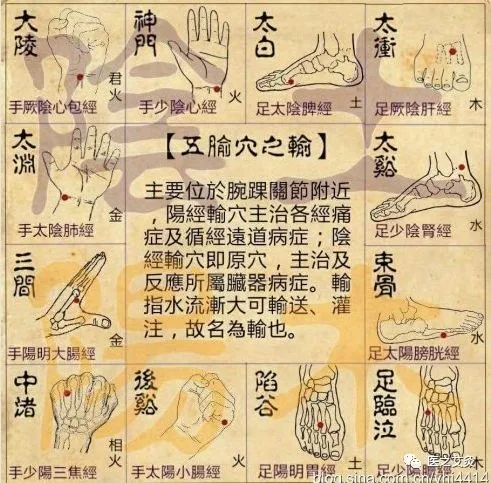 大陵
君火
手厥陰心包經
神門
火
手少陰心經
太白
土
足太陰脾經
太衝
木
足厥陰肝經
太淵
金
手太陰肺經
【五腧穴之輸】
主要位於腕踝關節附近
，陽經輸穴主治各經痛
症及循經遠道病症；陰
經輸穴即原穴，主治及
反應所屬臟器病症。輸
指水流漸大可輸送、灌
注，故名為輸也。
太谿
水
足少陰腎經
三間
金
手陽明大腸經
束骨
水
足太陽膀胱經
中渚
相火
手少陽三焦經
後谿
火
手太陽小腸經
陷谷
土
足陽明胃經
足臨泣
木
足少陽膽經
医艾灸
blog.sina.com.cn/ym4414